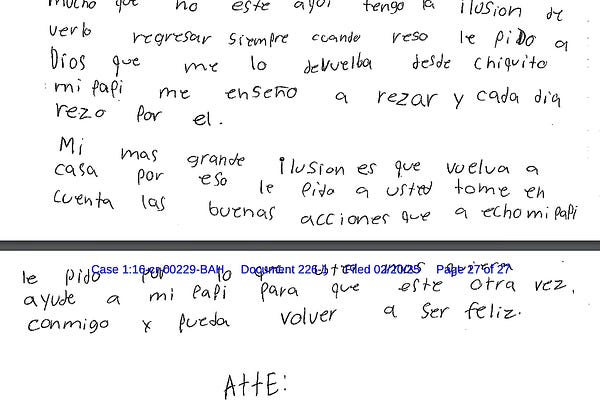 mucho que no este aqui tengo la ilusion de
verlo regresar siempre cuando reso le piDo a
Dios que me lo devuelba desde chiquito
mi papi me enseño a rezar y cada dia
rezo por el.
Mi mas grande ilusion es que vuelva a
casa por eso le pido a usted tome en
cuenta las buenas acciones que a echo mi papi
Case 1:16-cr-00229-BAH Document 226-1 Filed 02/20/25 Page 27 of 27
le pido por lo que
ayude a mi papi para que este otra vez,
conmigo y pueda volver a ser feliz.
AttE: